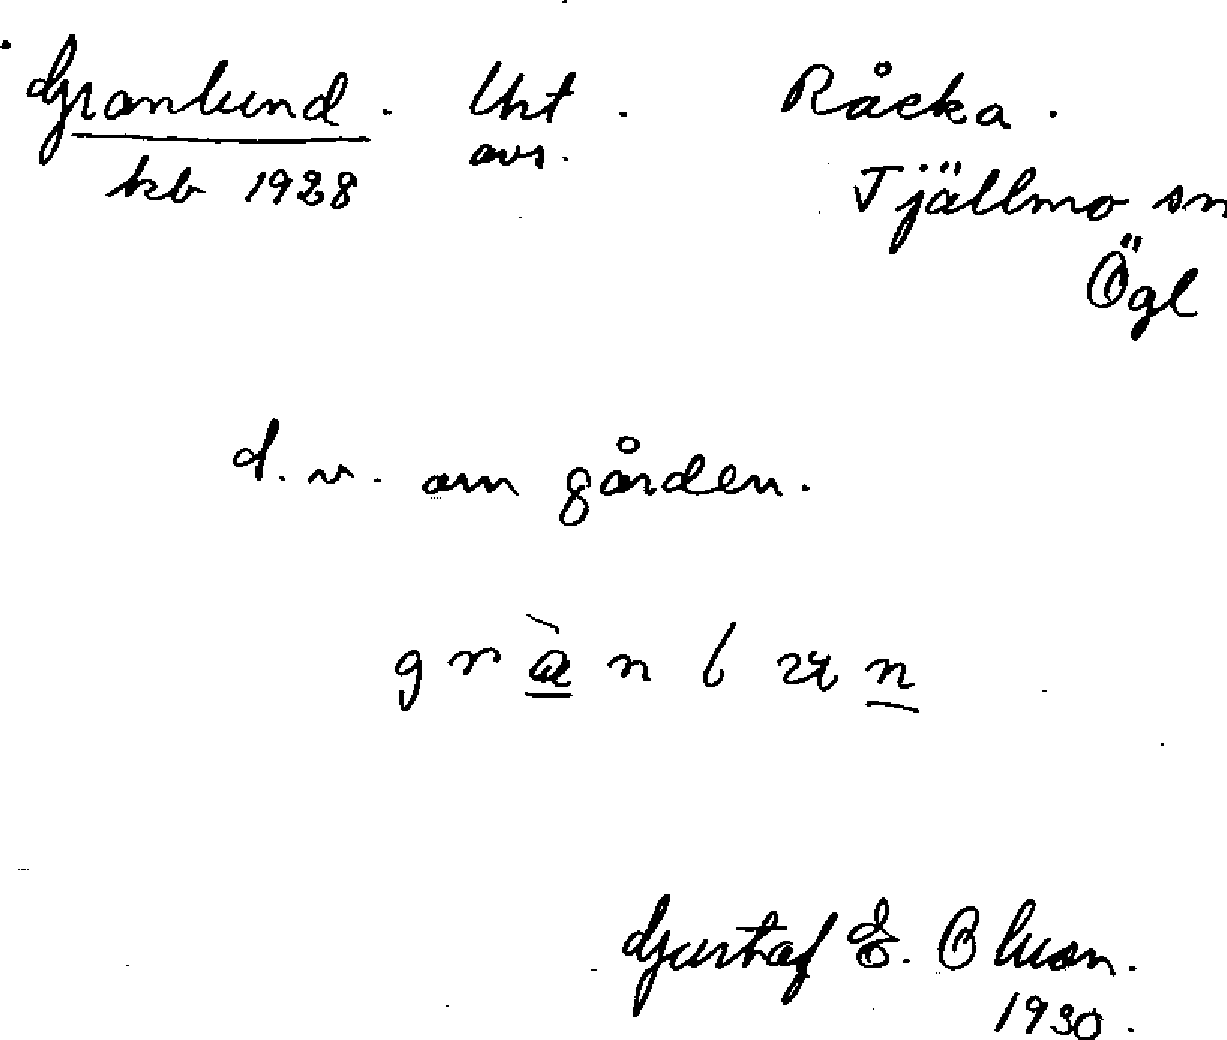 Granlund. Lht. Råcka.
kb 1928 avs. Tjällmo sn
Ögl
d. v. om gården.
g r à n l u n
Gustaf E. Olson.
1930.